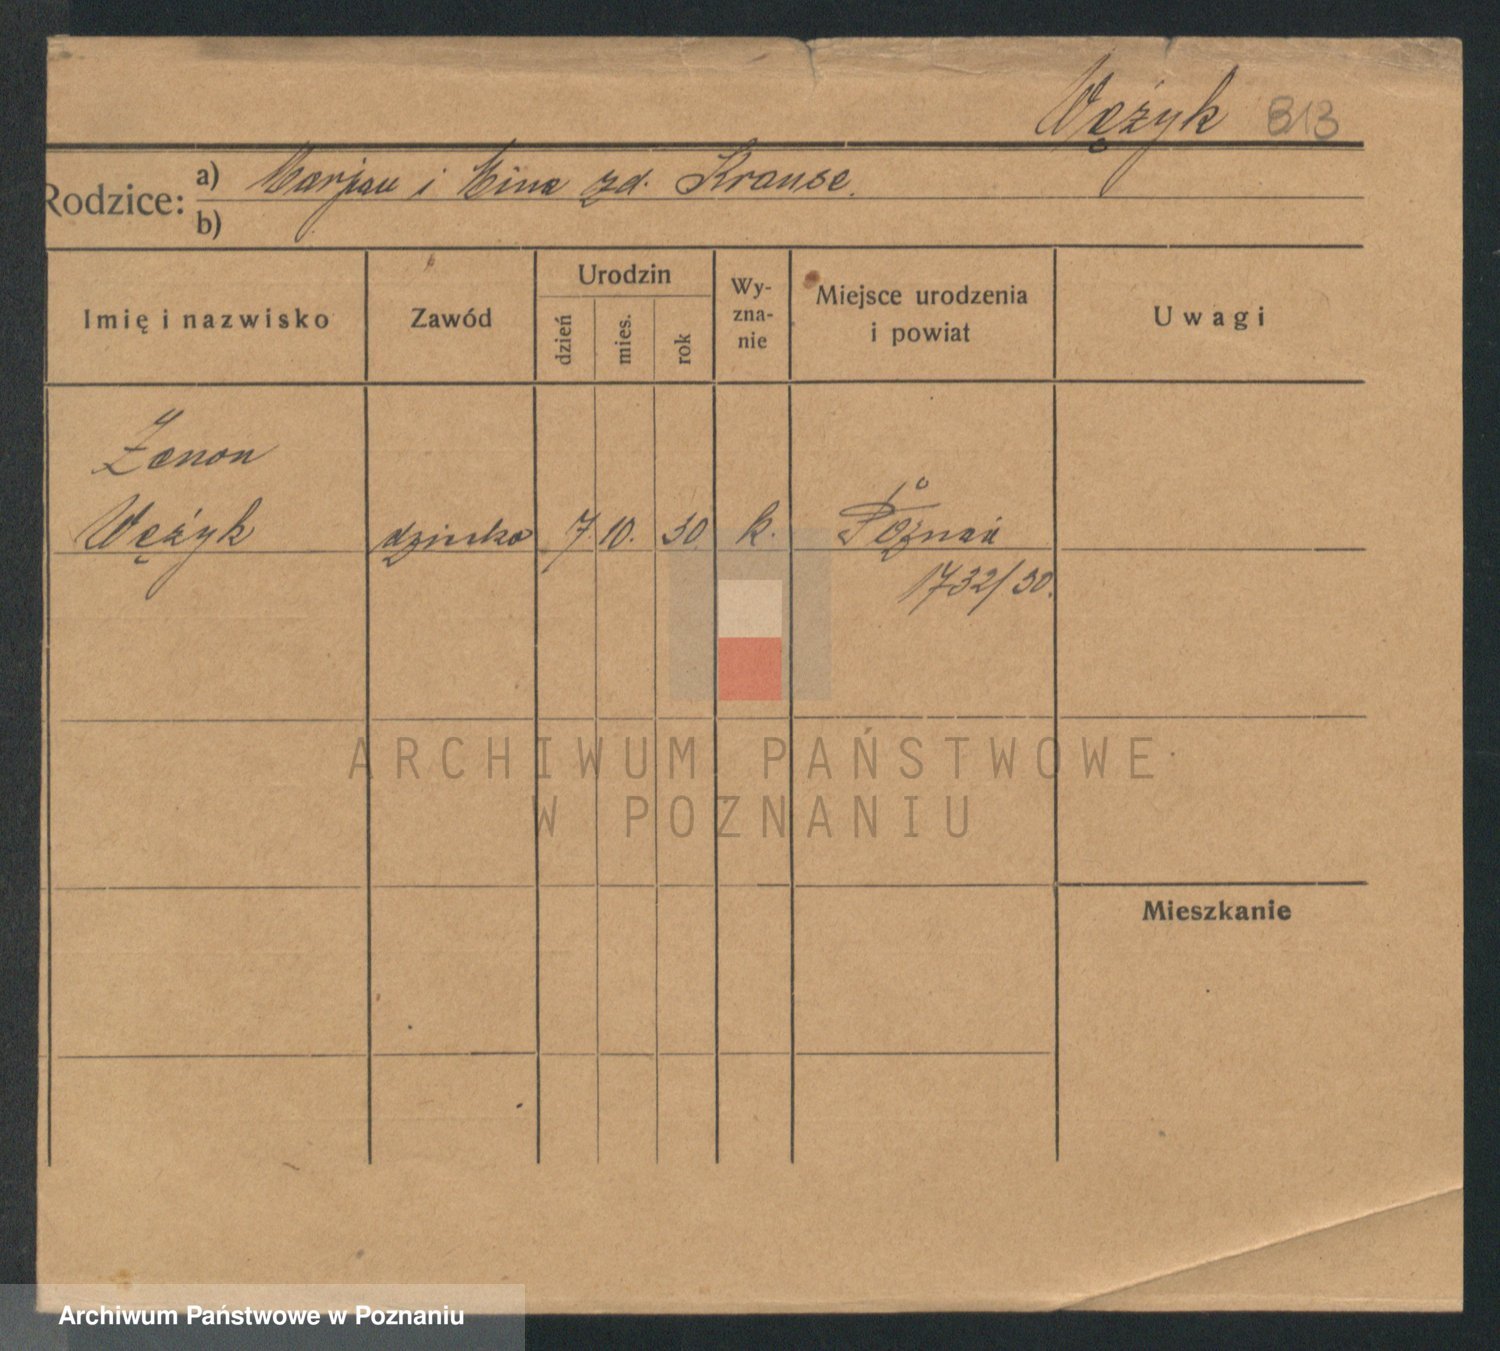 Wężyk 313
Rodzice:
a) Marjan i Mina zd. Krause.
b)
Imię i nazwisko
Zawód
Urodzin
dzień
mies.
rok
Wy-
zna-
nie
Miejsce urodzenia
i powiat
Uwagi
Zenon
Wężyk
7. 10. 30.
k.
Poznań
1732/30.
ARCHIWUM PAŃSTWOWE
W POZNANIU
Mieszkanie
Archiwum Państwowe w Poznaniu